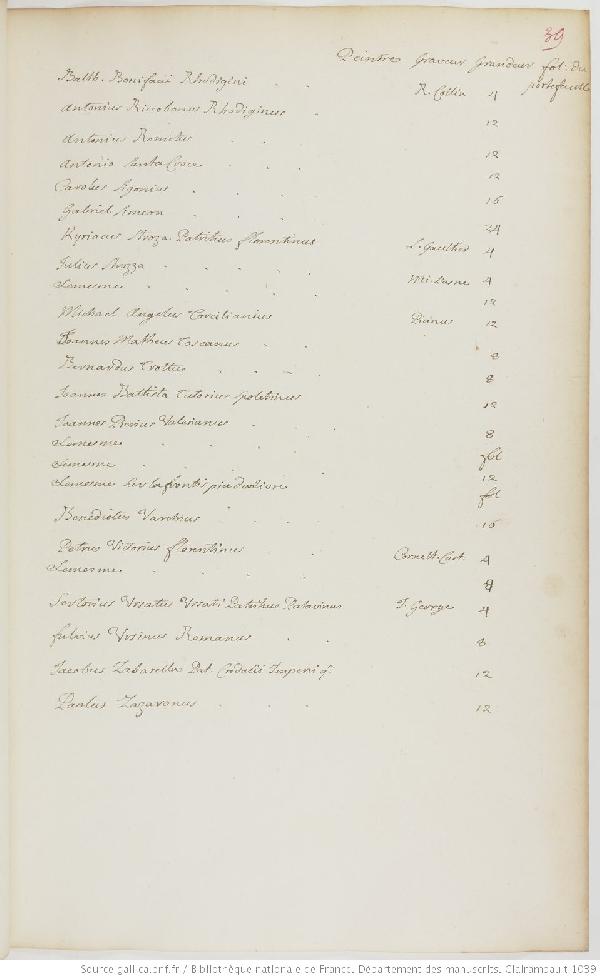 39
Peintre Graveur Grandeur fol. du portefeuille
Balth. Bonifacii Rhodigini R. Collin 4
Antonius Riccobonus Rhodiginus 12
Antonius 12
Antonio Santa Croce 12
Carolus Sigonius 16
Gabriel Simeon 24
Kyriacus Strozza Patritius florentinus L. Gaultier 4
Julius Strozza Mel. Lasne 4
Lemesme 12
Michael Angelus Torcilianius Pianus 12
Joannes Matheus Toscanus 8
Bernardus Trottus 8
Joannes Battista Spoletinus 12
Joannes Pierius Valerianus 8
Lemesme fol
Lemesme 12
Lemesme fol
Benedictus Varchius 16
Petrus Victorius florentinus Cornell. Cort 4
Lemesme 4
Sertorius Ursatus Ursati Patritius Patavinus J. George 4
fulvius Ursinus Romanus 8
Jacobus Zabarella Pat. 12
Paulus Zazaronus 12
Source gallica.bnf.fr / Bibliothèque nationale de France. Département des manuscrits. Clairambault 1039